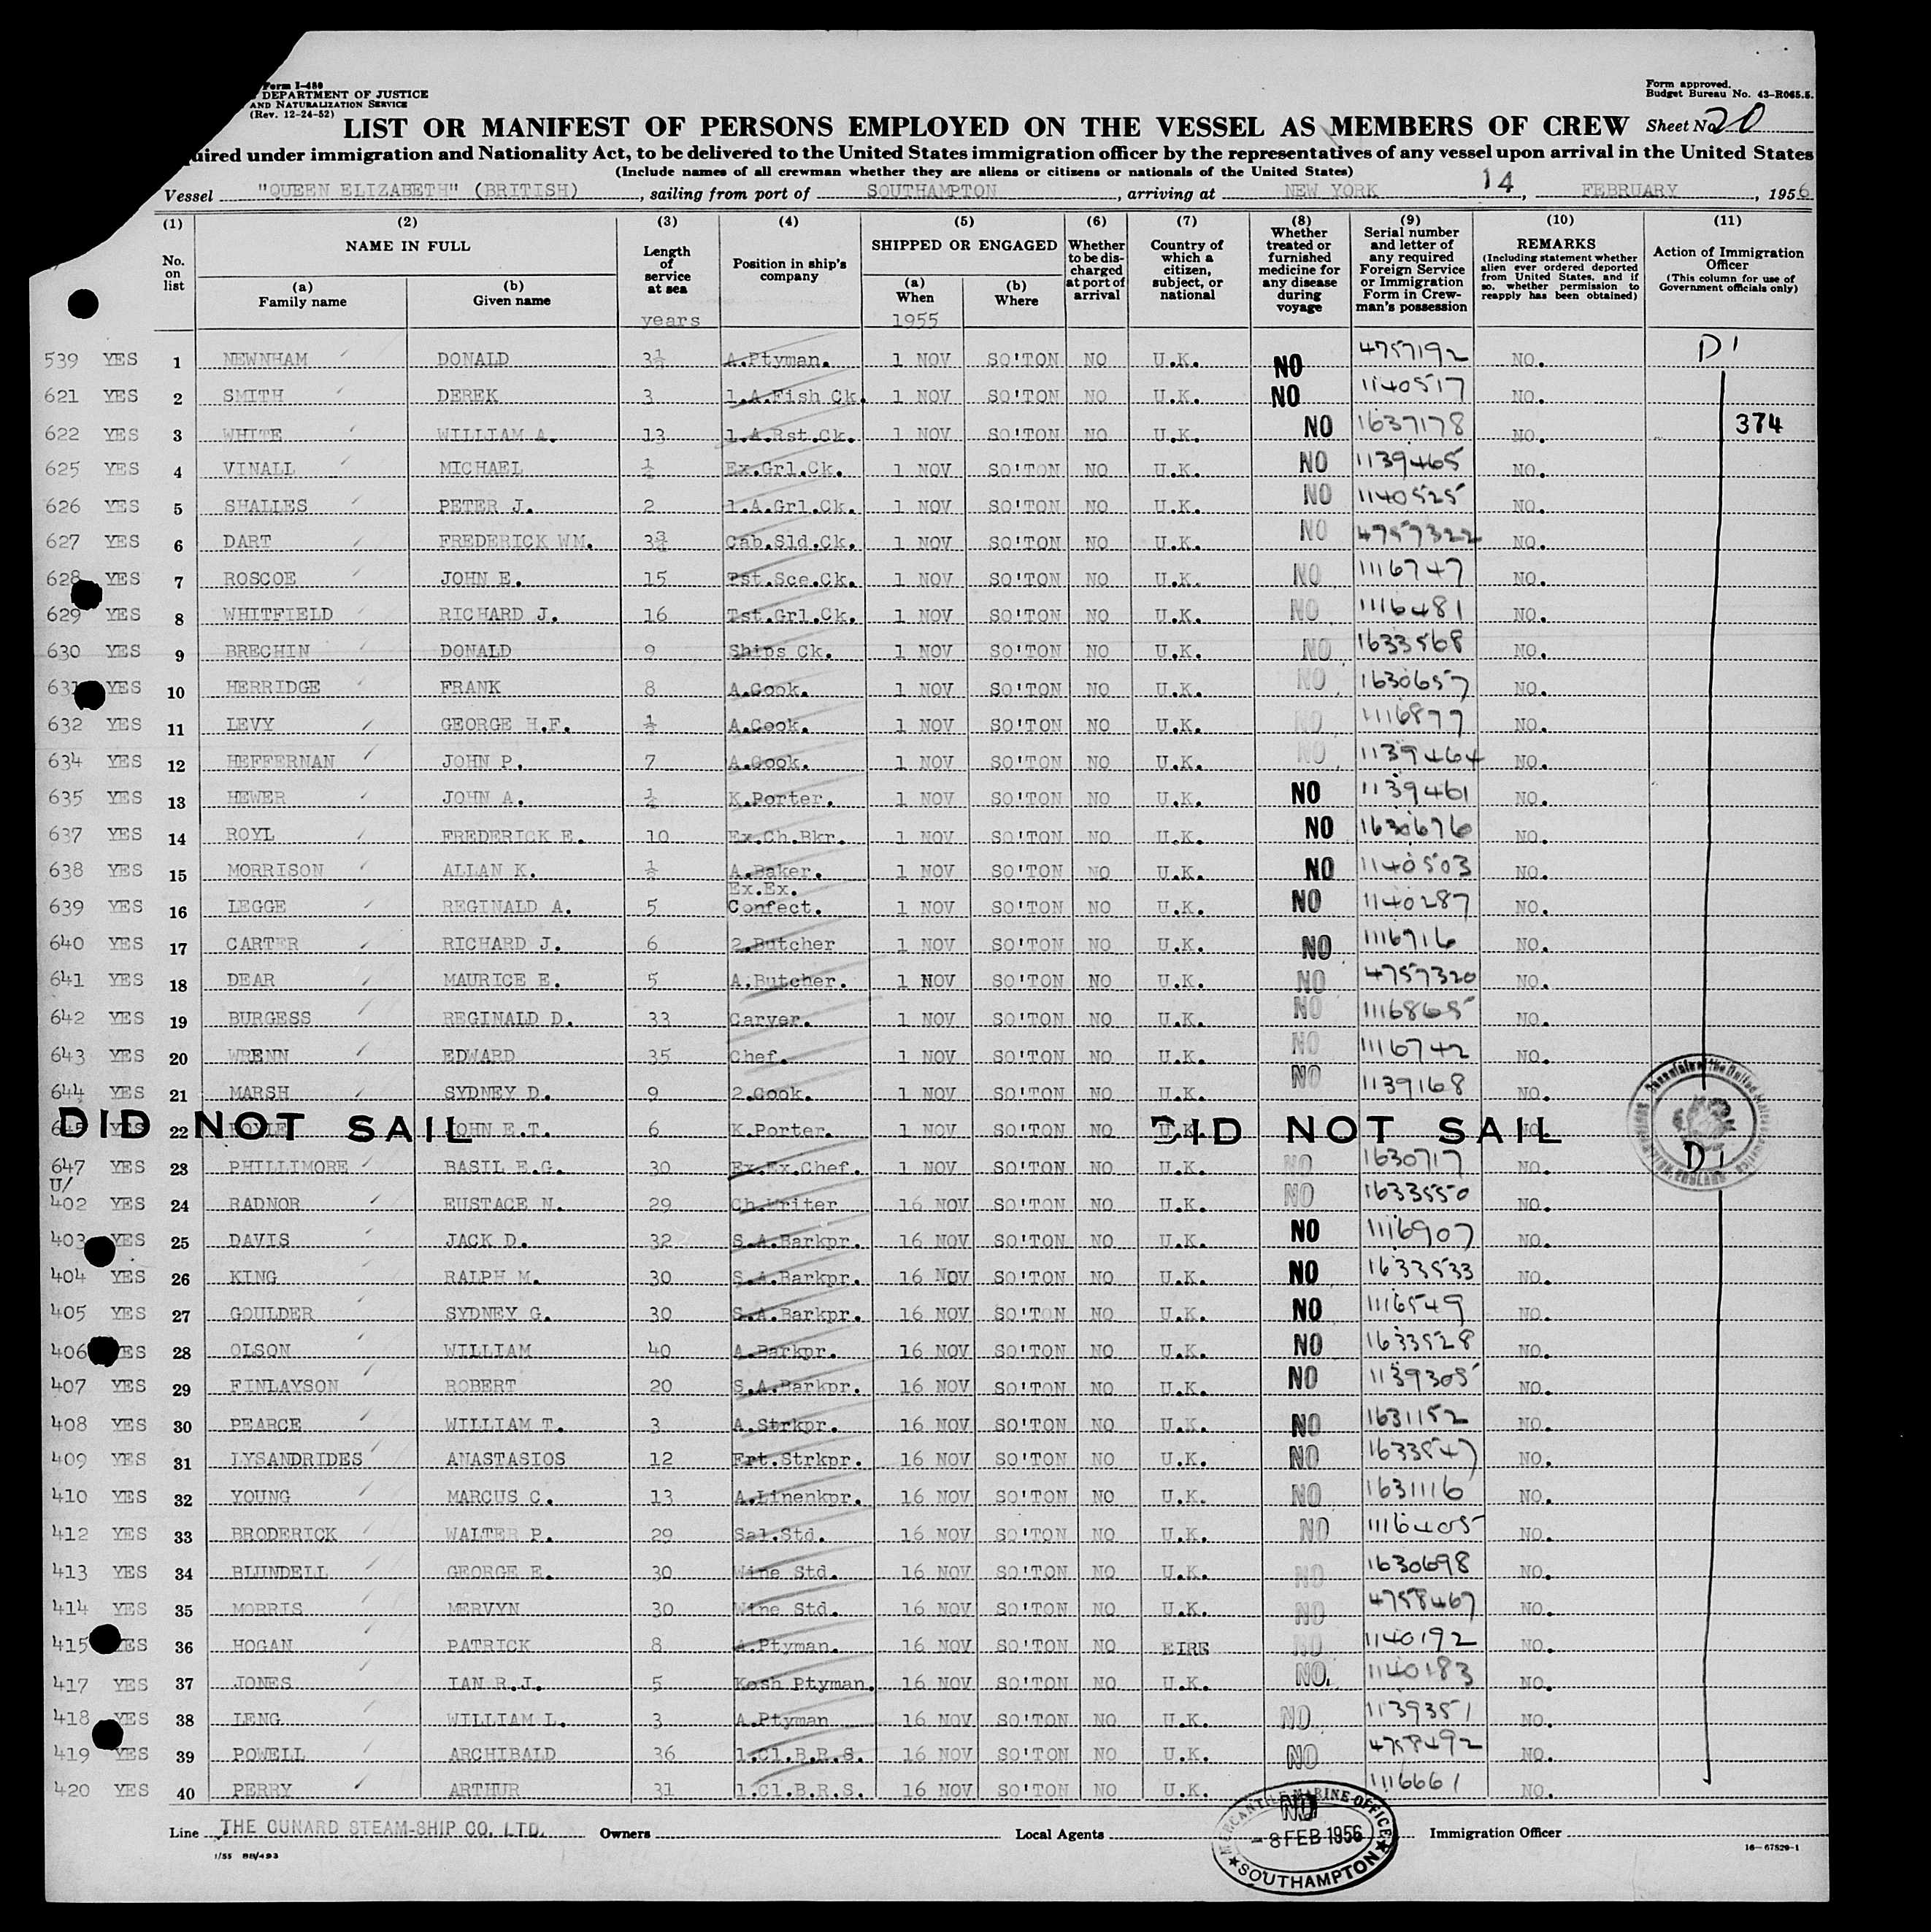 Form I-480
DEPARTMENT OF JUSTICE
AND NATURALIZATION SERVICE
(Rev. 12-24-52)
Form approved.
Budget Bureau No. 43-R065.5.
LIST OR MANIFEST OF PERSONS EMPLOYED ON THE VESSEL AS MEMBERS OF CREW Sheet No. 20
quired under immigration and Nationality Act, to be delivered to the United States immigration officer by the representatives of any vessel upon arrival in the United States
(Include names of all crewman whether they are aliens or citizens or nationals of the United States)
Vessel "QUEEN ELIZABETH" (BRITISH), sailing from port of SOUTHAMPTON, arriving at NEW YORK 14, FEBRUARY, 1956
(1) (2) (3) (4) (5) (6) (7) (8) (9) (10) (11)
No. on list
NAME IN FULL
(a) Family name
(b) Given name
Length of service at sea
years
Position in ship's company
SHIPPED OR ENGAGED
(a) When
1955
(b) Where
Whether to be discharged at port of arrival
Country of which a citizen, subject, or national
Whether treated or furnished medicine for any disease during voyage
Serial number and letter of any required Foreign Service or Immigration Form in Crewman's possession
REMARKS
(Including statement whether alien ever ordered deported from United States, and if so, whether permission to reapply has been obtained)
Action of Immigration Officer
(This column for use of Government officials only)
539 YES 1 NEWNHAM DONALD 3½ A.Ptyman. 1 NOV SO'TON NO U.K. NO 4757192 NO. D1
621 YES 2 SMITH DEREK 3 1.A.Fish Ck. 1 NOV SO'TON NO U.K. NO 1140517 NO.
622 YES 3 WHITE WILLIAM A. 13 1.A.Rst.Ck. 1 NOV SO'TON NO U.K. NO 1637178 NO. 374
625 YES 4 VINALL MICHAEL ½ Ex.Grl.Ck. 1 NOV SO'TON NO U.K. NO 1139465 NO.
626 YES 5 SHALLES PETER J. 2 1.A.Grl.Ck. 1 NOV SO'TON NO U.K. NO 1140525 NO.
627 YES 6 DART FREDERICK WM. 3¾ Cab.Sld.Ck. 1 NOV SO'TON NO U.K. NO 4757322 NO.
628 YES 7 ROSCOE JOHN E. 15 Tst.Sce.Ck. 1 NOV SO'TON NO U.K. NO 1116747 NO.
629 YES 8 WHITFIELD RICHARD J. 16 Tst.Grl.Ck. 1 NOV SO'TON NO U.K. NO 1116481 NO.
630 YES 9 BRECHIN DONALD 9 Ships Ck. 1 NOV SO'TON NO U.K. NO 1633568 NO.
631 YES 10 HERRIDGE FRANK 8 A.Cook. 1 NOV SO'TON NO U.K. NO 1630657 NO.
632 YES 11 LEVY GEORGE H.F. ½ A.Cook. 1 NOV SO'TON NO U.K. NO 1116877 NO.
634 YES 12 HEFFERNAN JOHN P. 7 A.Cook. 1 NOV SO'TON NO U.K. NO 1139464 NO.
635 YES 13 HEWER JOHN A. ½ K.Porter. 1 NOV SO'TON NO U.K. NO 1139461 NO.
637 YES 14 ROYL FREDERICK E. 10 Ex.Ch.Bkr. 1 NOV SO'TON NO U.K. NO 1630676 NO.
638 YES 15 MORRISON ALLAN K. ½ A.Baker. 1 NOV SO'TON NO U.K. NO 1140503 NO.
639 YES 16 LEGGE REGINALD A. 5 Ex.Ex. Confect. 1 NOV SO'TON NO U.K. NO 1140287 NO.
640 YES 17 CARTER RICHARD J. 6 2.Butcher 1 NOV SO'TON NO U.K. NO 1116716 NO.
641 YES 18 DEAR MAURICE E. 5 A.Butcher. 1 NOV SO'TON NO U.K. NO 4757320 NO.
642 YES 19 BURGESS REGINALD D. 33 Carver. 1 NOV SO'TON NO U.K. NO 1116865 NO.
643 YES 20 WRENN EDWARD 35 Chef. 1 NOV SO'TON NO U.K. NO 1116742 NO.
644 YES 21 MARSH SYDNEY D. 9 2.Cook. 1 NOV SO'TON NO U.K. NO 1139168 NO.
645 YES 22 JOHN E.T. 6 K.Porter. 1 NOV SO'TON NO U.K. NO
DID NOT SAIL DID NOT SAIL
647 YES 23 PHILLIMORE BASIL E.G. 30 Ex.Ex.Chef. 1 NOV SO'TON NO U.K. NO 1630717 NO. D1
U/
402 YES 24 RADNOR EUSTACE N. 29 Ch.Writer 16 NOV SO'TON NO U.K. NO 1633550 NO.
403 YES 25 DAVIS JACK D. 32 S.A.Barkpr. 16 NOV SO'TON NO U.K. NO 1116907 NO.
404 YES 26 KING RALPH M. 30 S.A.Barkpr. 16 NOV SO'TON NO U.K. NO 1633533 NO.
405 YES 27 GOULDER SYDNEY G. 30 S.A.Barkpr. 16 NOV SO'TON NO U.K. NO 1116549 NO.
406 YES 28 OLSON WILLIAM 40 A.Barkpr. 16 NOV SO'TON NO U.K. NO 1633528 NO.
407 YES 29 FINLAYSON ROBERT 20 S.A.Barkpr. 16 NOV SO'TON NO U.K. NO 1139305 NO.
408 YES 30 PEARCE WILLIAM T. 3 A.Strkpr. 16 NOV SO'TON NO U.K. NO 1631152 NO.
409 YES 31 LYSANDRIDES ANASTASIOS 12 Frt.Strkpr. 16 NOV SO'TON NO U.K. NO 1633547 NO.
410 YES 32 YOUNG MARCUS C. 13 A.Linenkpr. 16 NOV SO'TON NO U.K. NO 1631116 NO.
412 YES 33 BRODERICK WALTER P. 29 Sal.Std. 16 NOV SO'TON NO U.K. NO 1116405 NO.
413 YES 34 BLUNDELL GEORGE E. 30 Wine Std. 16 NOV SO'TON NO U.K. NO 1630698 NO.
414 YES 35 MORRIS MERVYN 30 Wine Std. 16 NOV SO'TON NO U.K. NO 4758467 NO.
415 YES 36 HOGAN PATRICK 8 A.Ptyman. 16 NOV SO'TON NO EIRE NO 1140192 NO.
417 YES 37 JONES IAN R.J. 5 Kosh Ptyman. 16 NOV SO'TON NO U.K. NO. 1140183 NO.
418 YES 38 LENG WILLIAM L. 3 A.Ptyman 16 NOV SO'TON NO U.K. NO 1139351 NO.
419 YES 39 POWELL ARCHIBALD 36 1.Cl.B.R.S. 16 NOV SO'TON NO U.K. NO 4758492 NO.
420 YES 40 PERRY ARTHUR 31 1.Cl.B.R.S. 16 NOV SO'TON NO U.K. NO 1116661 NO.
Line THE CUNARD STEAM-SHIP CO. LTD. Owners Local Agents Immigration Officer
MERCANTILE MARINE OFFICE
-8 FEB 1956
SOUTHAMPTON
1/55 BB/493
16—67529-1